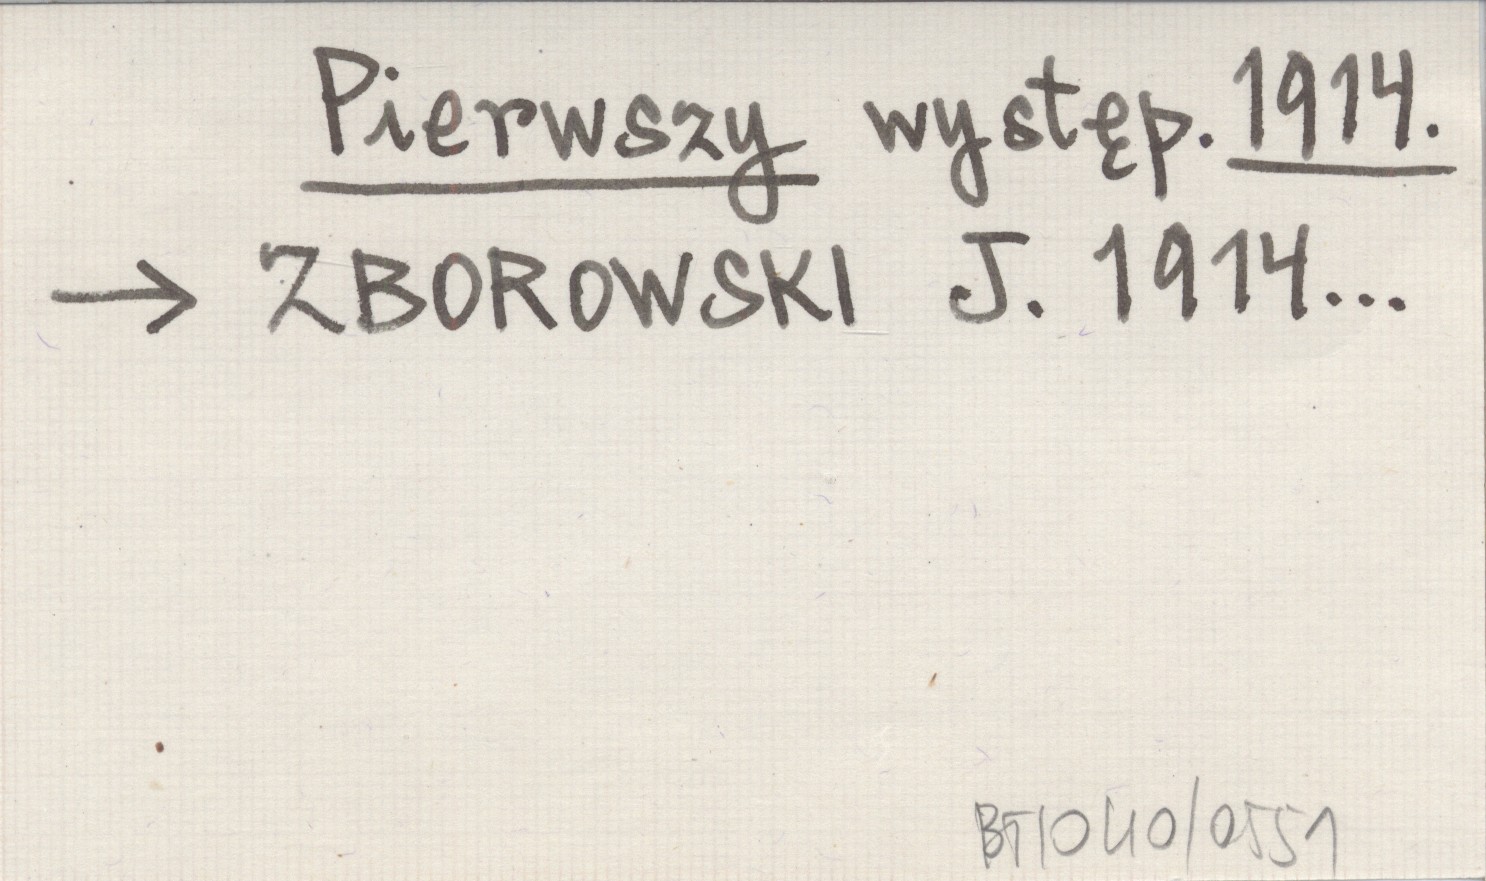 Pierwszy występ. 1914.
→ ZBOROWSKI J. 1914...
BT/040/0551